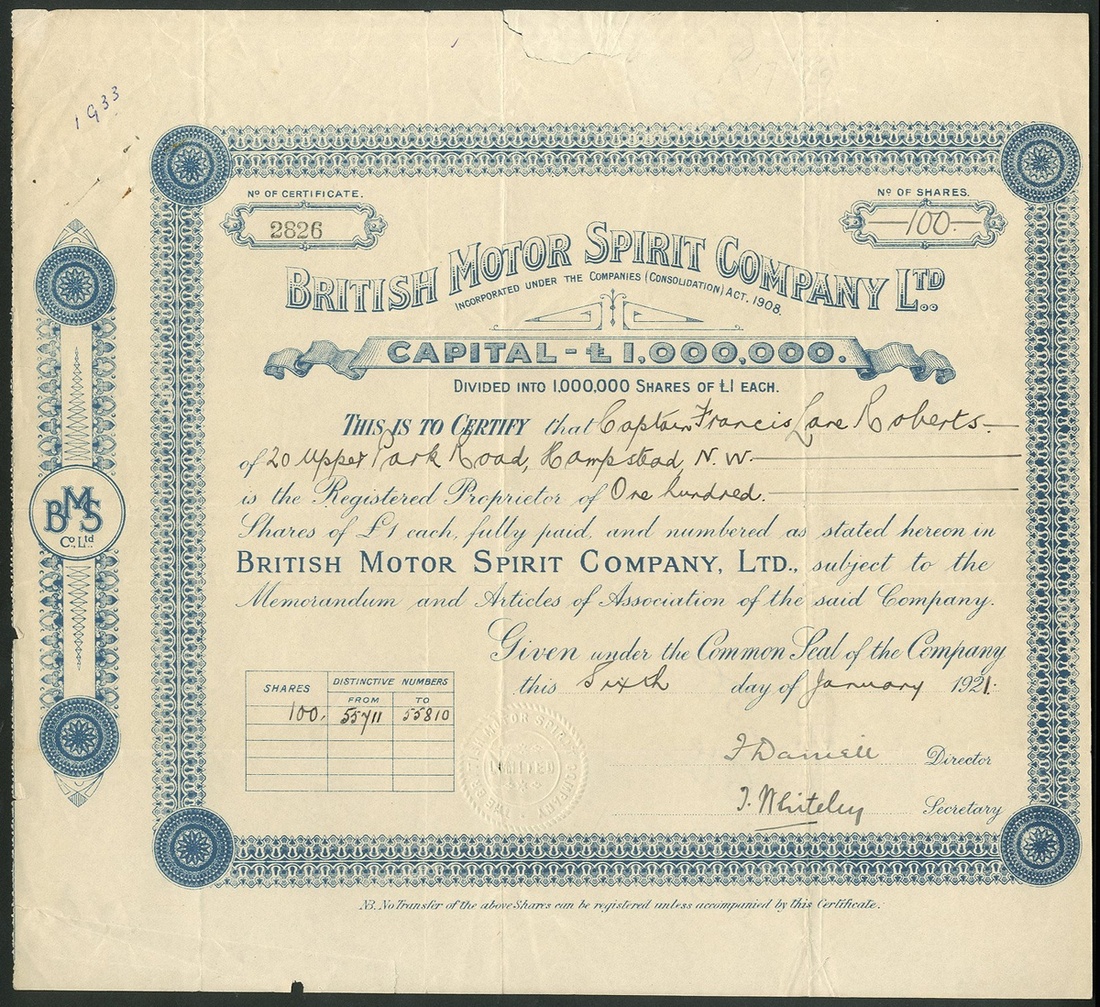 1933
Nº OF CERTIFICATE.
2826
Nº OF SHARES.
100.
BRITISH MOTOR SPIRIT COMPANY LTD
INCORPORATED UNDER THE COMPANIES (CONSOLIDATION) ACT. 1908.
CAPITAL - £1,000,000.
DIVIDED INTO 1,000,000 SHARES OF £1 EACH.
THIS IS TO CERTIFY that Captain Francis Lane Roberts
of 20 Upper Park Road, Hampstead, N.W.
is the Registered Proprietor of One hundred.
Shares of £1 each, fully paid, and numbered as stated hereon in
BRITISH MOTOR SPIRIT COMPANY, LTD., subject to the
Memorandum and Articles of Association of the said Company.
Given under the Common Seal of the Company
this Sixth day of January 1921.
SHARES
DISTINCTIVE NUMBERS
FROM TO
100. 55711 55810
F Daniell Director
J. Whiteley Secretary
BMS
Co. Ltd.
LIMITED
NB. No Transfer of the above Shares can be registered unless accompanied by this Certificate.